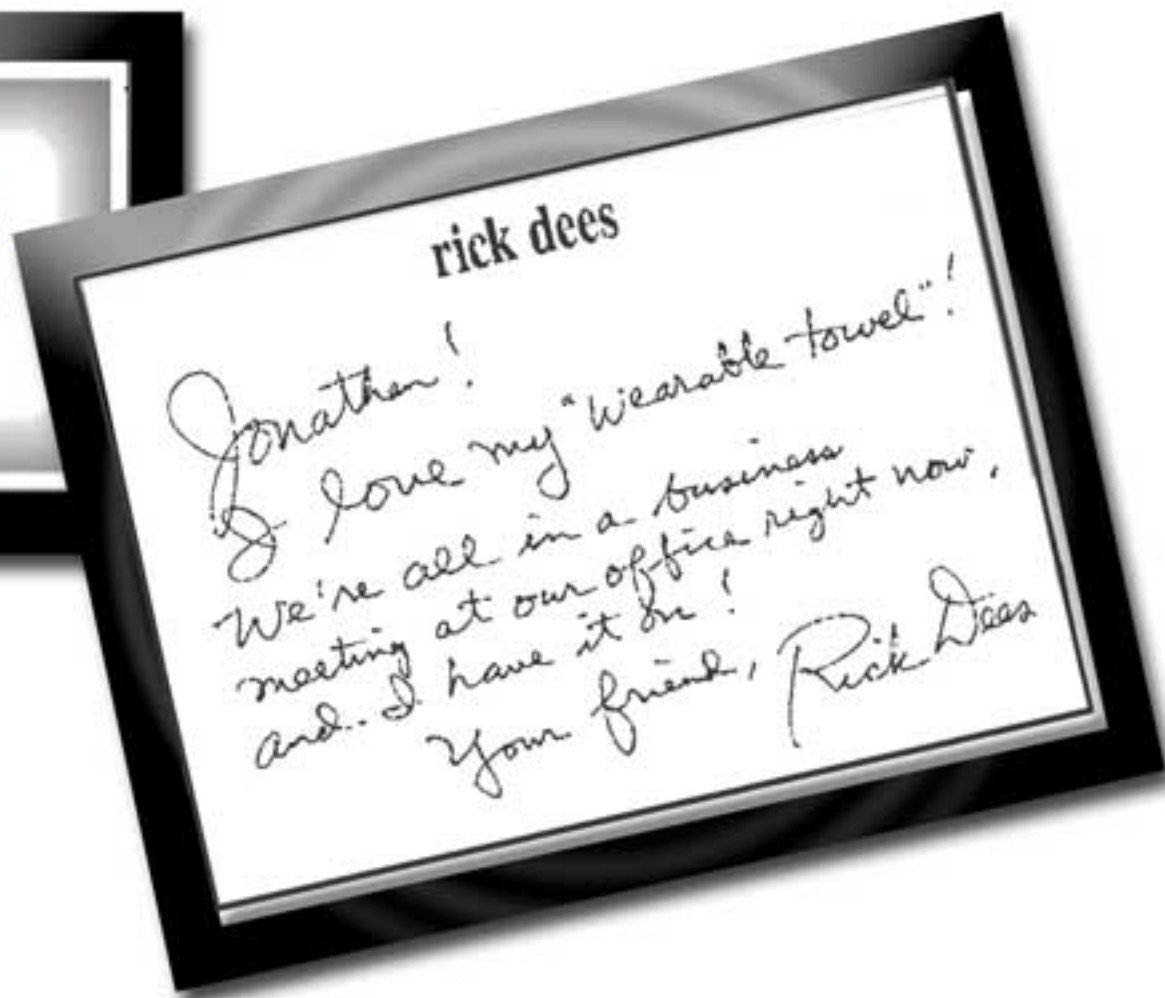 rick dees
Jonathan!
I love my "wearable towel"!
We're all in a business
meeting at our office right now,
and.. I have it on!
Your friend, Rick Dees